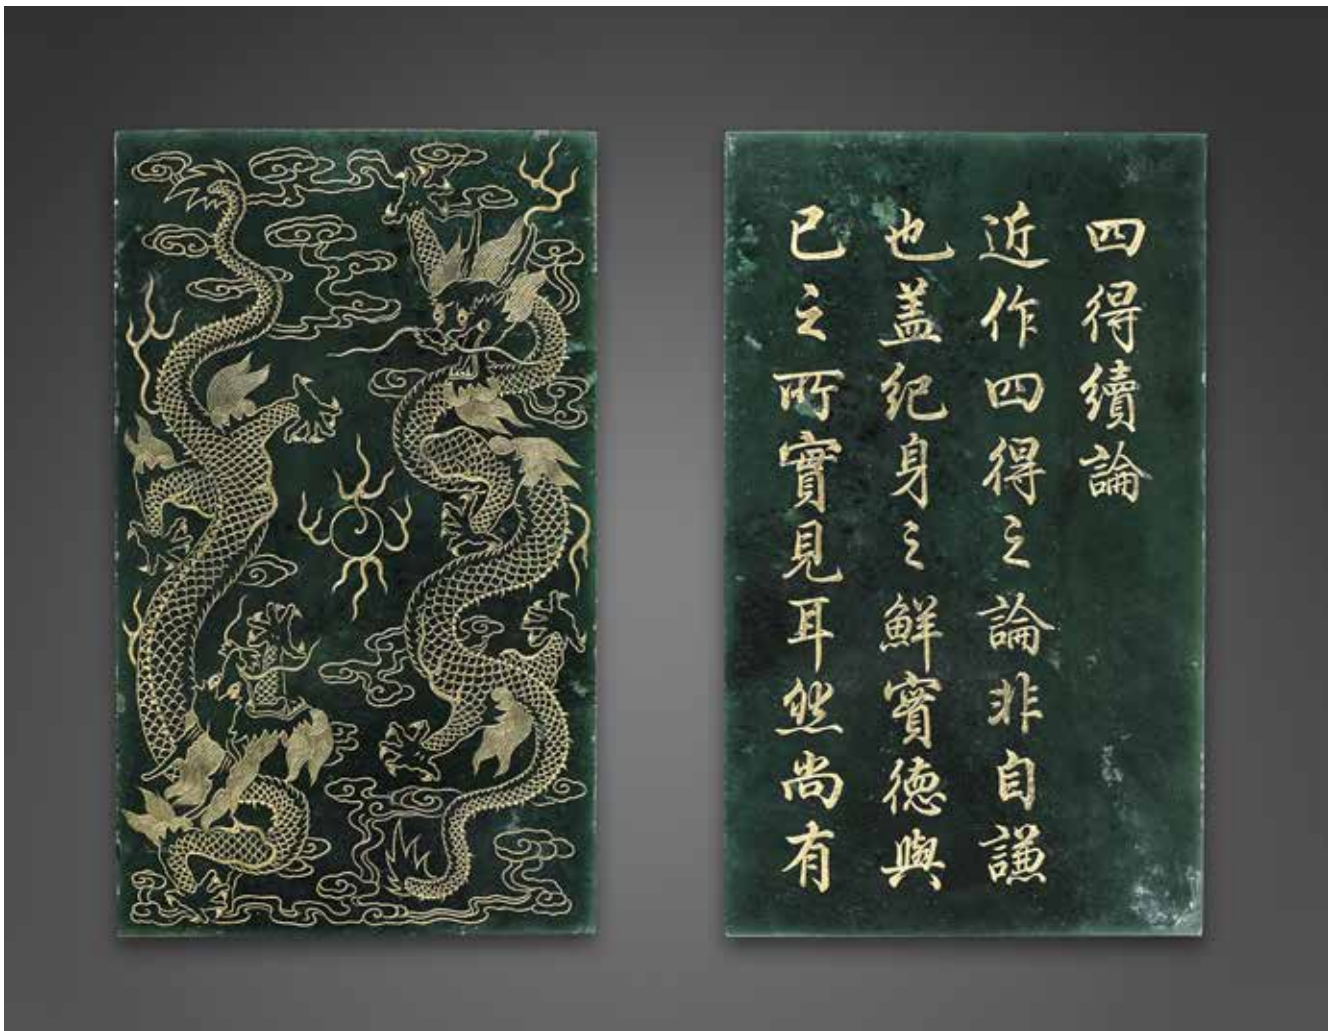 四得續論
近作四得之論非自謙
也盖紀身之鮮實德與
已之所實見耳然尚有